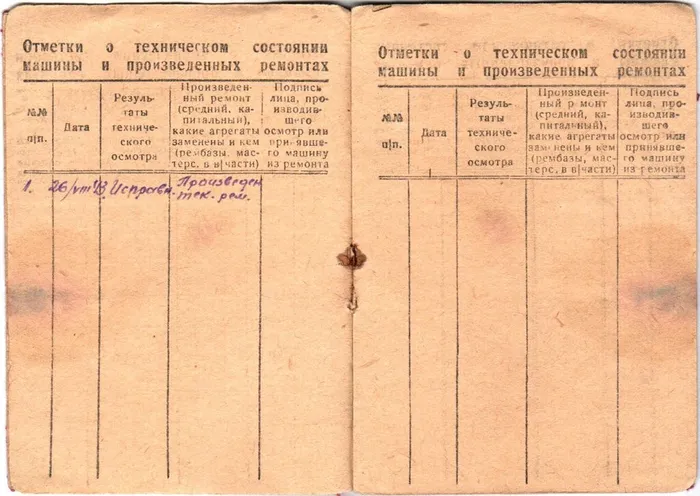 Отметки о техническом состоянии
машины и произведенных ремонтах
№№
п|п.
Дата
Резуль-
таты
техниче-
ского
осмотра
Произведен-
ный ремонт
(средний, ка-
питальный),
какие агрегаты
заменены и кем
(рембазы, мас-
терс, в в|части)
Подпись
лица, про-
изводив-
шего
осмотр или
принявше-
го машину
из ремонта
1. 26/VIII 43. Исправн. Произведен
тек. рем.
Отметки о техническом состоянии
машины и произведенных ремонтах
№№
п|п.
Дата
Резуль-
таты
техниче-
ского
осмотра
Произведен-
ный ремонт
(средний, ка-
питальный),
какие агрегаты
заменены и кем
(рембазы, мас-
терс, в в|части)
Подпись
лица, про-
изводив-
шего
осмотр или
принявше-
го машину
из ремонта